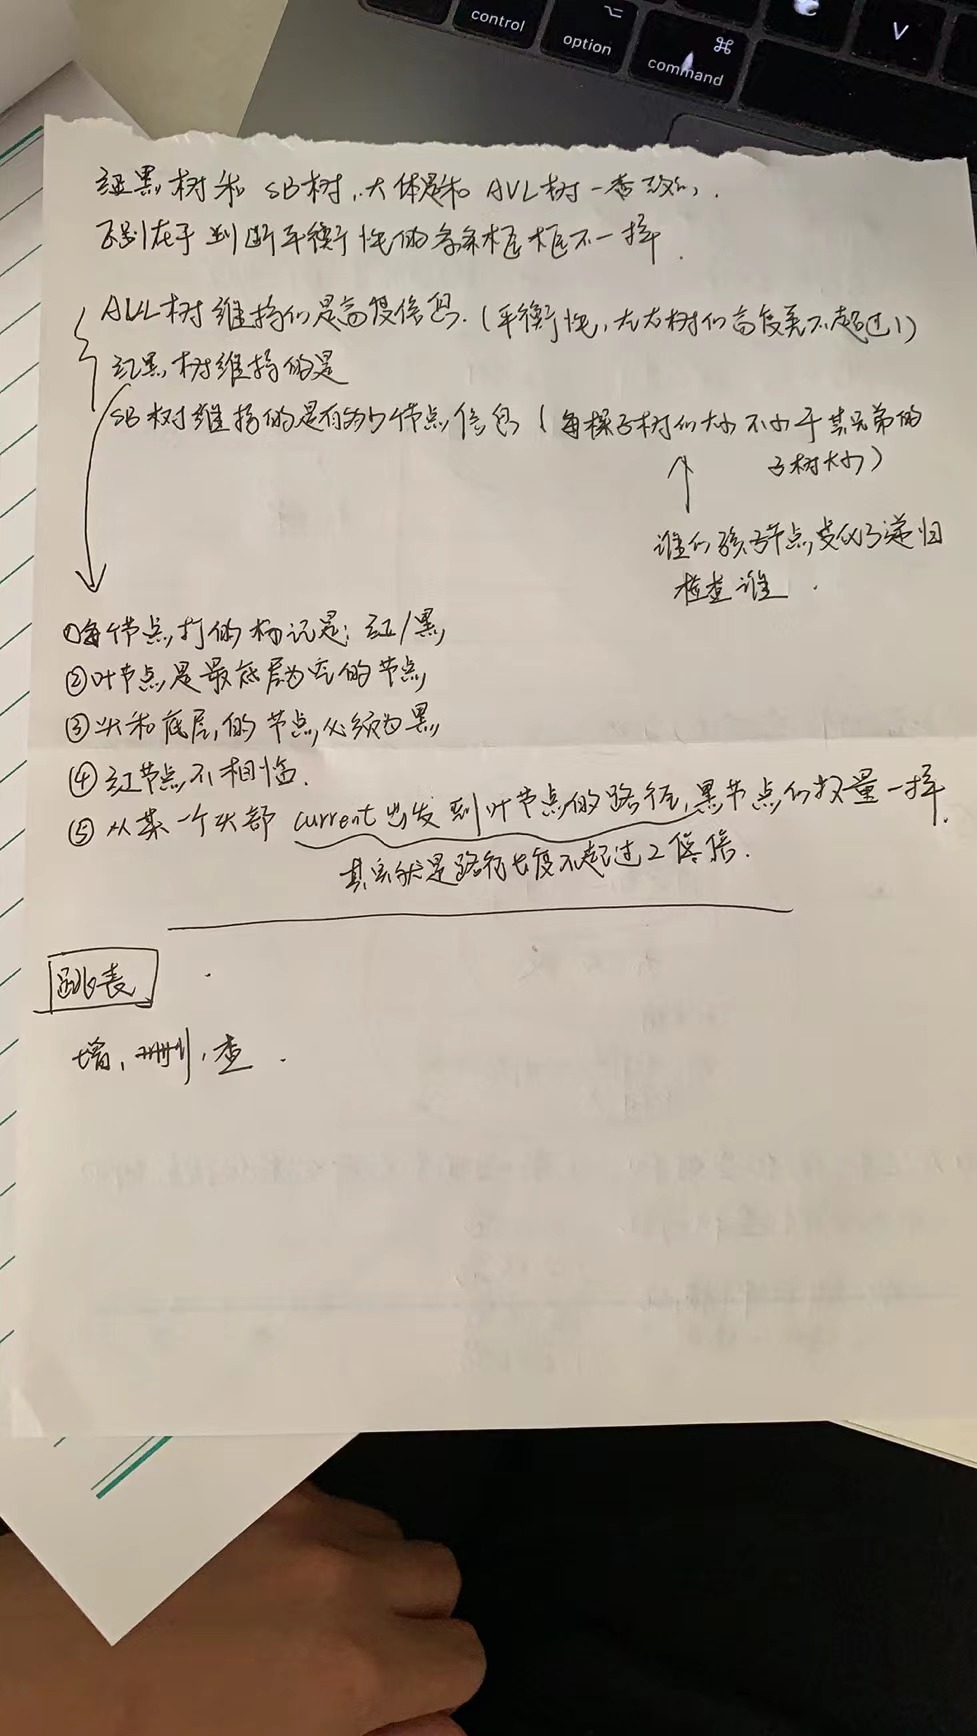 control
option
command
V
红黑树和 SB树,大体是和 AVL树一致的,
区别在于判断平衡性的条框框不一样.
AVL树维持的是高度信息.(平衡性,左右树的高度差不超过1)
红黑树维持的是
SB树维持的是有多少个节点信息(每棵子树的大小不小于其兄弟的
子树大小)
谁的孩子节点变化了递归
检查谁.
①每个节点,打的标记是:红/黑,
②叶节点,是最底层为空的节点,
③头和底层,的节点,必须为黑,
④红节点不相临.
⑤从某一个头部 current出发到叶节点的路径,黑节点的数量一样.
其实就是路径长度不超过2倍.
跳表
增,删,查.